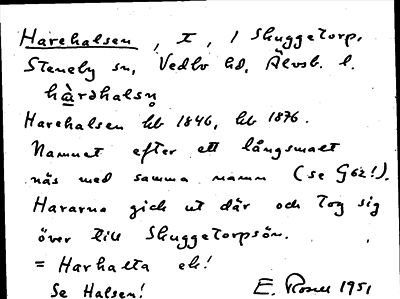 Harehalsen, I, 1 Skuggetorp,
Steneby sn, Vedbo hd, Älvsb. l.
hàrəhalsn̥
Harehalsen hb 1846, hb 1876.
Namnet efter ett långsmalt
näs med samma namn (se Göz!).
Hararna gick ut där och tog sig
över till Skuggetorpsön.
= Harhalta ek!
Se Halsen! E. Rosell 1951